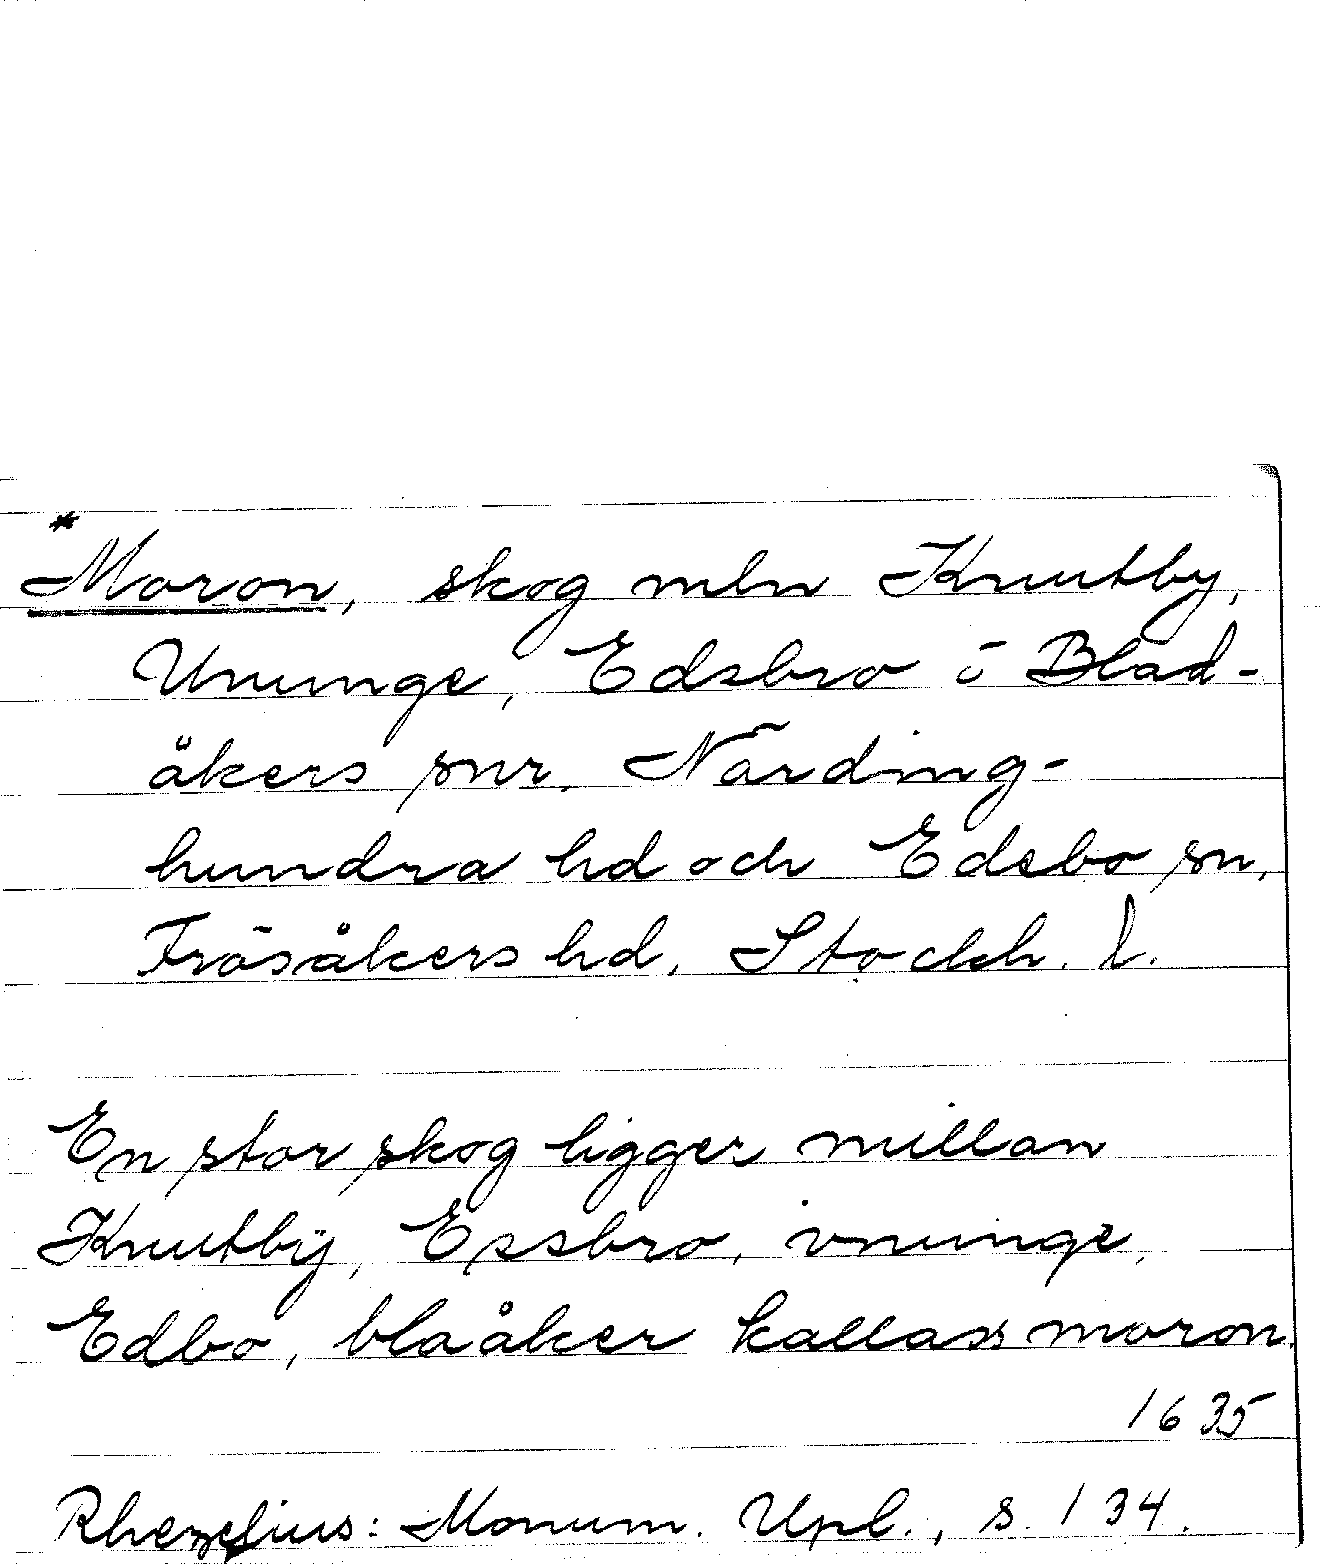 *Moron, skog mln Knutby,
Ununge, Edsbro o Blad-
åkers snr. Närding-
hundra hd och Edebo sn,
Frösåkers hd, Stockh. l.
En stor skog ligger millan
Knutbÿ, Essbro, vnunge,
Edbo, blaåker kallass moron.
1635
Rhezelius: Monum. Upl., s. 134.